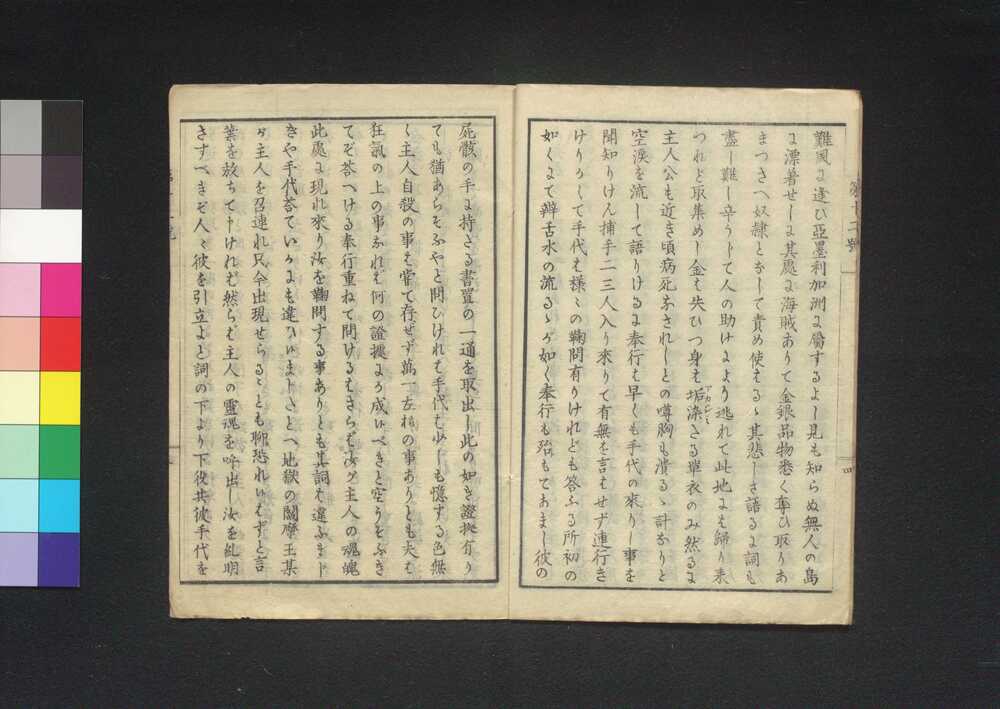 難風に逢ひ亞墨利加洲に屬するよし見も知らぬ無人の島
に漂着せしに其處に海賊ありて金銀品物悉く奪ひ取りあ
まつさへ奴隷となして責め使はるゝ其悲しさ語るに詞も
盡し難し辛うして人の助けにより逃れて此地には歸り来
つれど取集めし金は失ひつ身は垢染さる單衣のみ然るに
アカジミ
主人公も近き頃病死なされしとの噂胸も潰るゝ計なりと
空淚を流して語りけるに奉行は早くも手代の來りし事を
聞知りけん捕手二三人入り來りて有無を言はせず連行き
けりかくて手代は樣〻の鞠問有りけれども答ふる所初の
如くにて辨舌水の流るゝが如く奉行も殆もてあまし彼の
屍骸の手に持さる書置の一通を取出し此の如き證拠有り
ても猶あらそふやと問ひけれは手代は少しも憶する色無
く主人自殺の事は嘗て存せず萬一左樣の事ありとも夫は
狂氣の上の事なれは何の證據にか成いべきと空うそぶき
てぞ答へける奉行重ねて問けるはさらは汝が主人の魂魄
此處に現れ來り汝を鞠問する事ありとも其詞は違ふまじ
きや手代荅ていかにも違ひいましさとへ地獄の閻摩王某
が主人を召連れ只今出現せらるゝとも聊恐れいはずと言
葉を放ちて申けれは然らは主人の靈魂を呼出し汝を糺明
さすべきぞ人〻彼を引立よと詞の下より下役共彼手代を